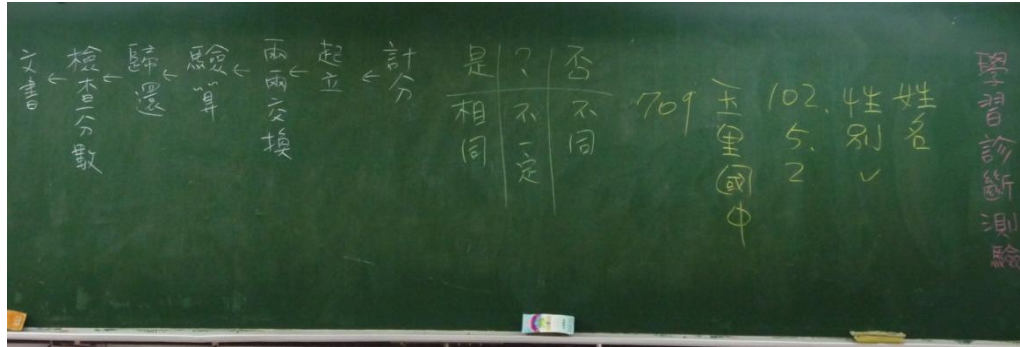 學習診斷測驗
姓名
性別✓
102.5.2
玉里國中
709
否 不同
? 不一定
是 相同
計分
←
起立
←
兩兩交換
←
驗算
←
歸還
←
檢查分數
←
文書